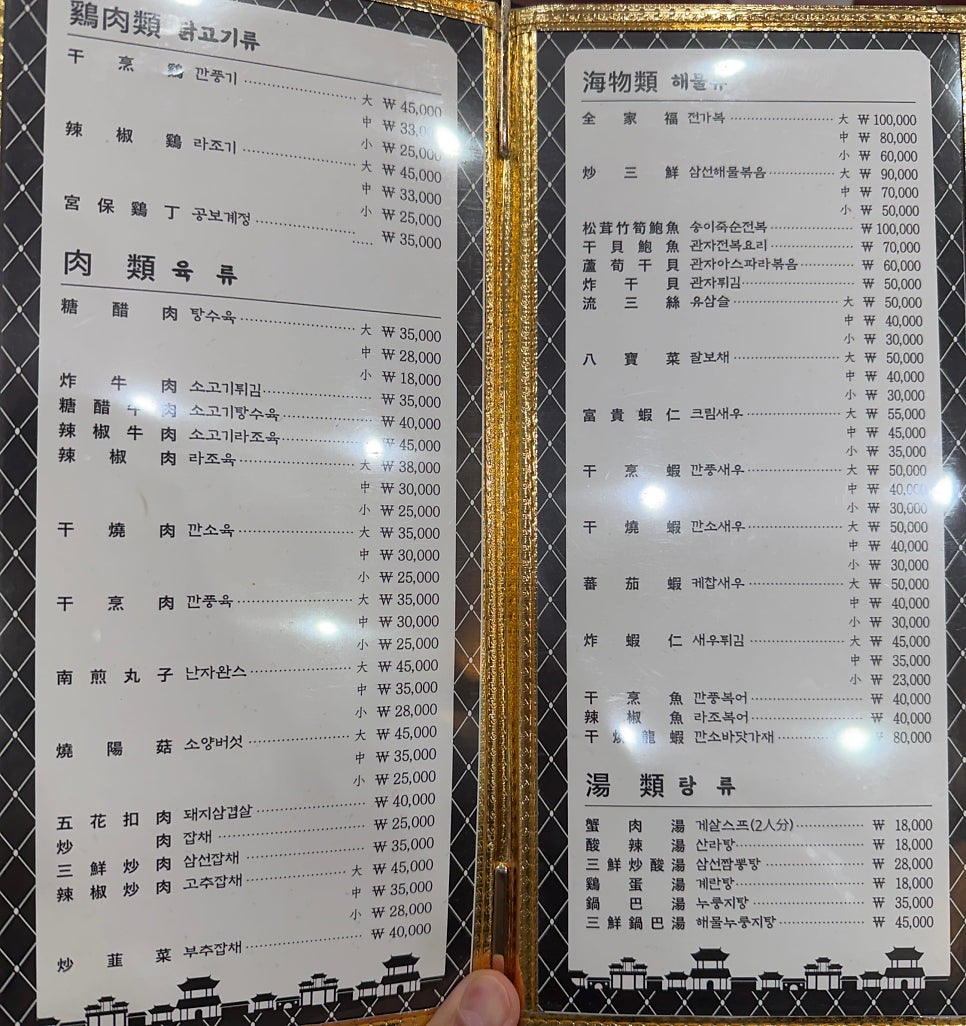 鷄肉類 닭고기류
干烹鷄 깐풍기 大 ₩ 45,000
中 ₩ 33,0
小 ₩ 25,000
辣椒鷄 라조기 大 ₩ 45,000
中 ₩ 33,000
小 ₩ 25,000
宮保鷄丁 공보계정 ₩ 35,000
肉類 육류
糖醋肉 탕수육 大 ₩ 35,000
中 ₩ 28,000
小 ₩ 18,000
炸牛肉 소고기튀김 ₩ 35,000
糖醋牛肉 소고기탕수육 ₩ 40,000
辣椒牛肉 소고기라조육 ₩ 45,000
辣椒肉 라조육 大 ₩ 38,000
中 ₩ 30,000
小 ₩ 25,000
干燒肉 깐소육 大 ₩ 35,000
中 ₩ 30,000
小 ₩ 25,000
干烹肉 깐풍육 大 ₩ 35,000
中 ₩ 30,000
小 ₩ 25,000
南煎丸子 난자완스 大 ₩ 45,000
中 ₩ 35,000
小 ₩ 28,000
燒陽菇 소양버섯 大 ₩ 45,000
中 ₩ 35,000
小 ₩ 25,000
五花扣肉 돼지삼겹살 ₩ 40,000
炒肉 잡채 ₩ 25,000
三鮮炒肉 삼선잡채 ₩ 35,000
辣椒炒肉 고추잡채 大 ₩ 45,000
中 ₩ 35,000
小 ₩ 28,000
炒韮菜 부추잡채 ₩ 40,000
海物類 해물류
全家福 전가복 大 ₩ 100,000
中 ₩ 80,000
小 ₩ 60,000
炒三鮮 삼선해물볶음 大 ₩ 90,000
中 ₩ 70,000
小 ₩ 50,000
松茸竹筍鮑魚 송이죽순전복 ₩ 100,000
干貝鮑魚 관자전복요리 ₩ 70,000
蘆荀干貝 관자아스파라볶음 ₩ 60,000
炸干貝 관자튀김 ₩ 50,000
流三絲 유삼슬 大 ₩ 50,000
中 ₩ 40,000
小 ₩ 30,000
八寶菜 팔보채 大 ₩ 50,000
中 ₩ 40,000
小 ₩ 30,000
富貴蝦仁 크림새우 大 ₩ 55,000
中 ₩ 45,000
小 ₩ 35,000
干烹蝦 깐풍새우 大 ₩ 50,000
中 ₩ 40,000
小 ₩ 30,000
干燒蝦 깐소새우 大 ₩ 50,000
中 ₩ 40,000
小 ₩ 30,000
蕃茄蝦 케찹새우 大 ₩ 50,000
中 ₩ 40,000
小 ₩ 30,000
炸蝦仁 새우튀김 大 ₩ 45,000
中 ₩ 35,000
小 ₩ 23,000
干烹魚 깐풍복어 ₩ 40,000
辣椒魚 라조복어 ₩ 40,000
干燒龍蝦 깐소바닷가재 ₩ 80,000
湯類 탕류
蟹肉湯 게살스프(2人分) ₩ 18,000
酸辣湯 산라탕 ₩ 18,000
三鮮炒酸湯 삼선짬뽕탕 ₩ 28,000
鷄蛋湯 계란탕 ₩ 18,000
鍋巴湯 누룽지탕 ₩ 35,000
三鮮鍋巴湯 해물누룽지탕 ₩ 45,000